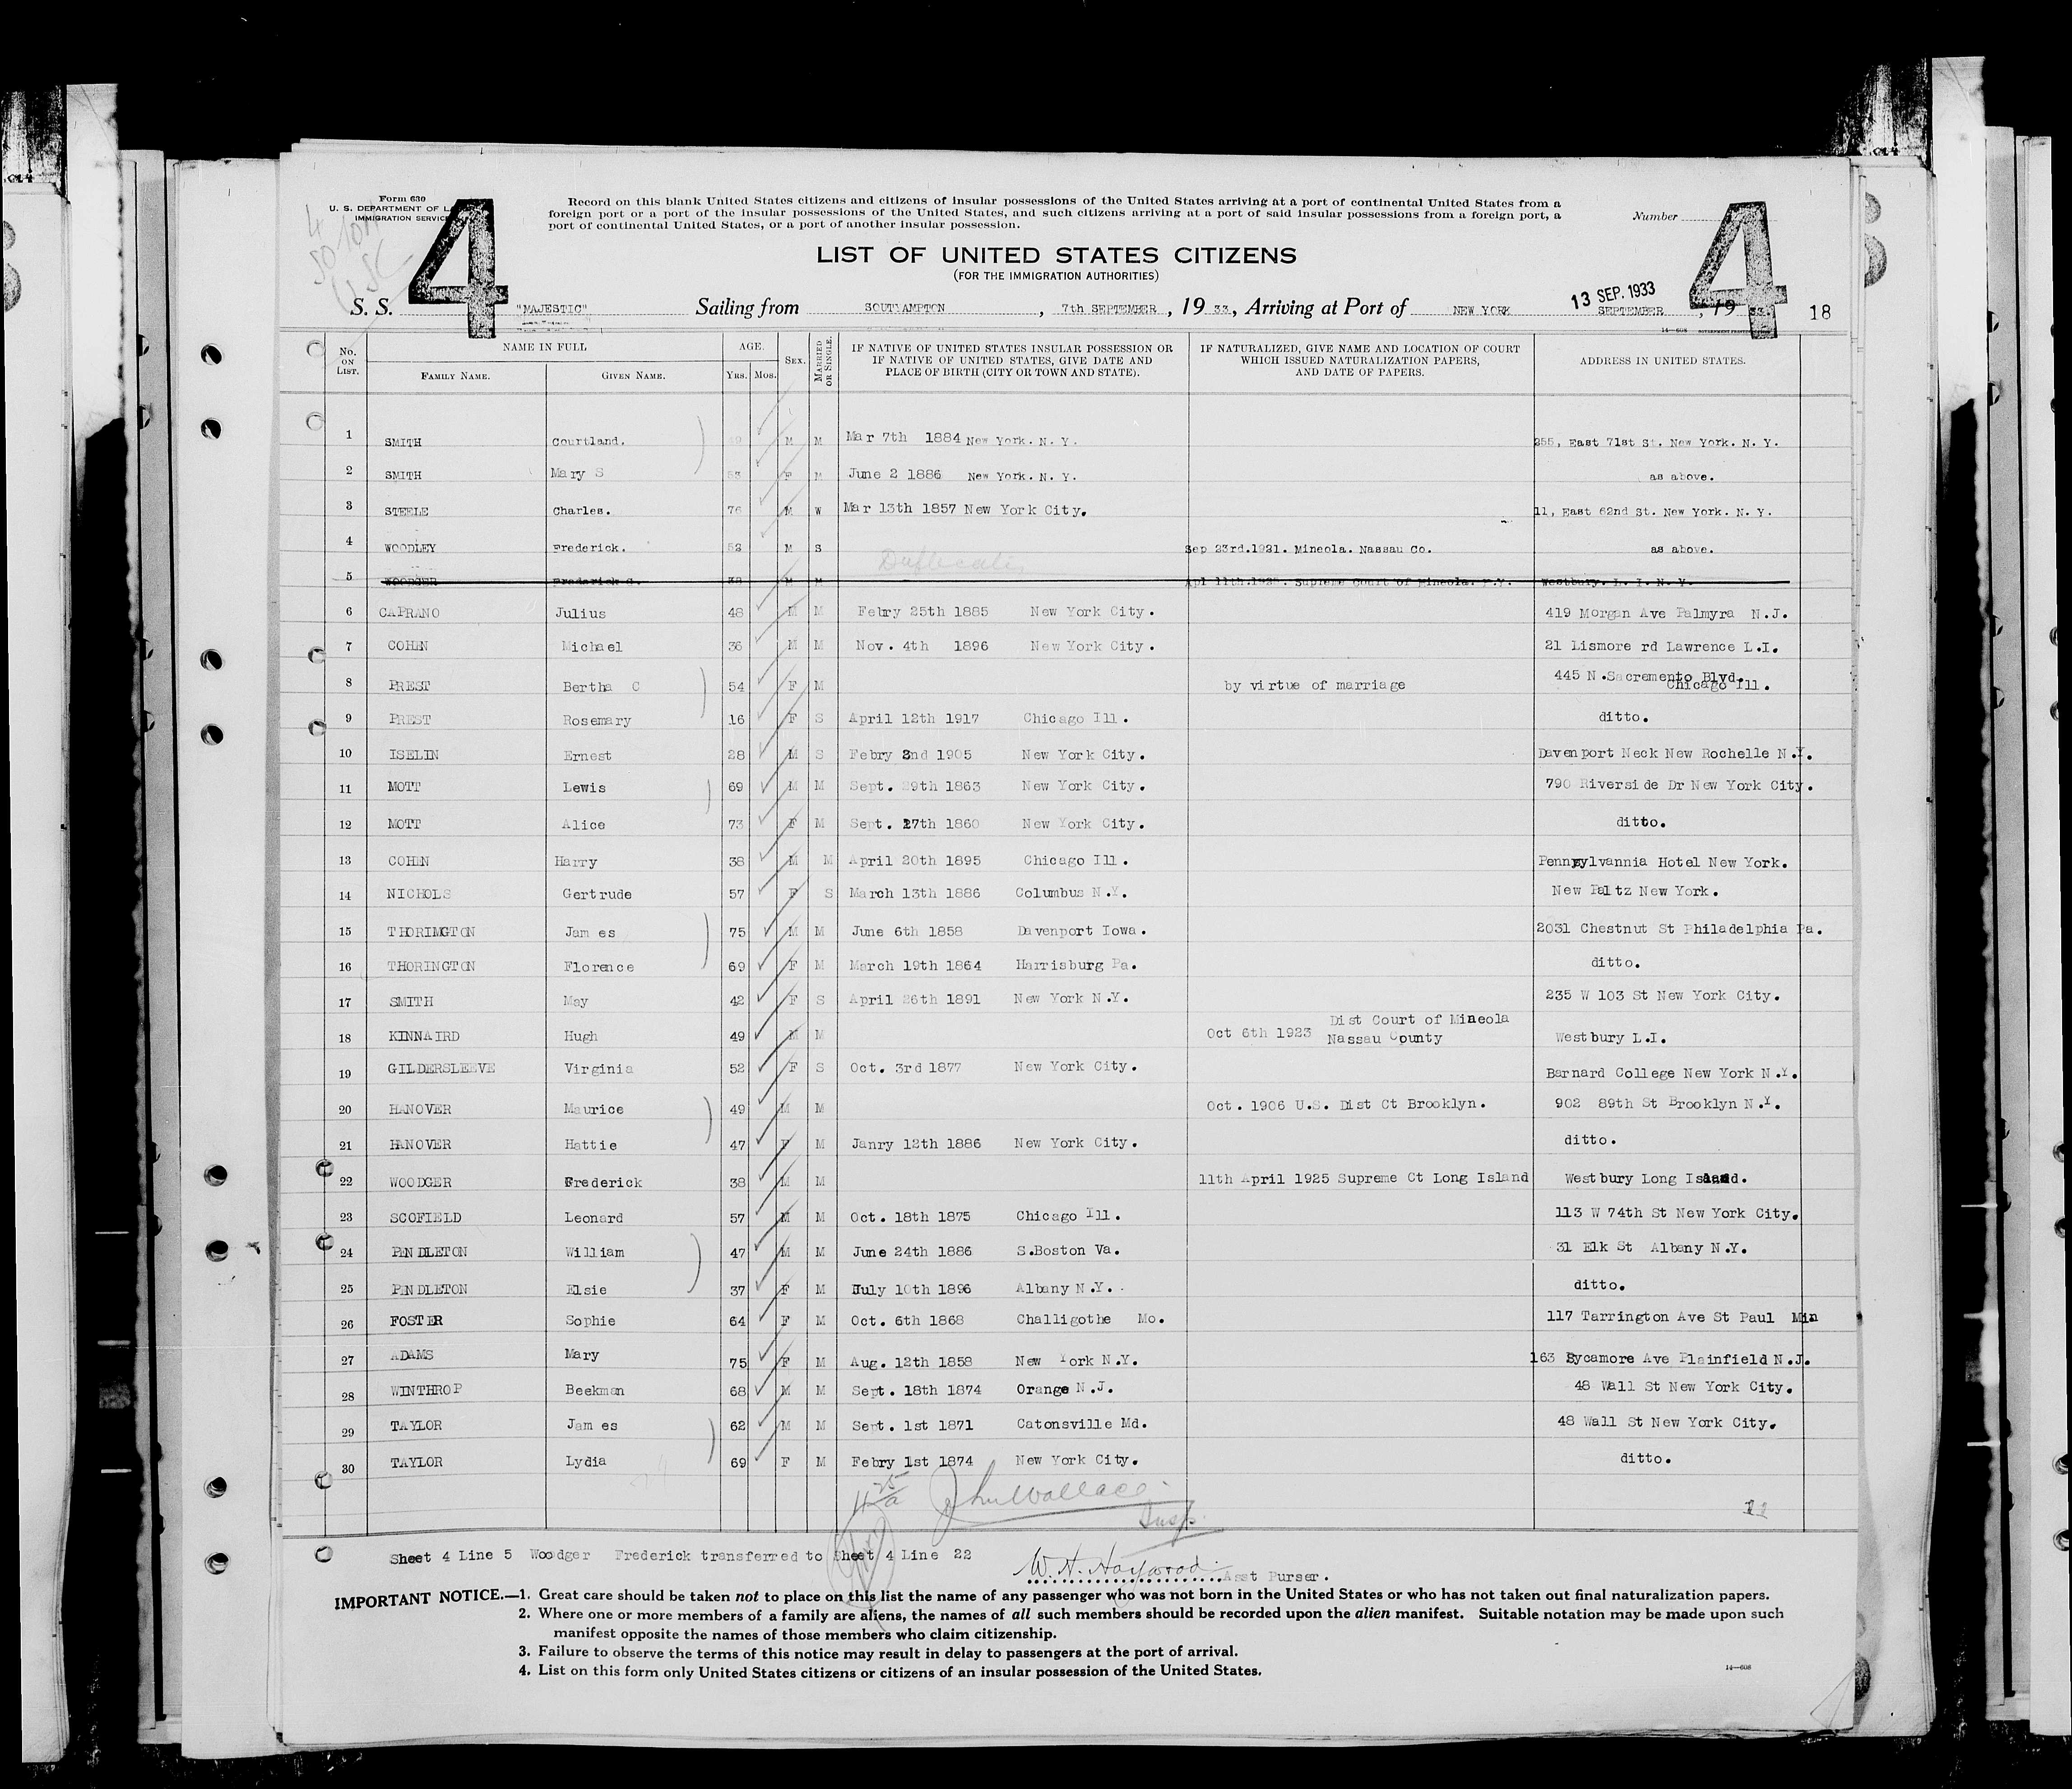 Form 630
U. S. DEPARTMENT OF
IMMIGRATION SERVICE
4
USC
4
Record on this blank United States citizens and citizens of insular possessions of the United States arriving at a port of continental United States from a
foreign port or a port of the insular possessions of the United States, and such citizens arriving at a port of said insular possessions from a foreign port, a
port of continental United States, or a port of another insular possession.
Number
4
LIST OF UNITED STATES CITIZENS
(FOR THE IMMIGRATION AUTHORITIES)
13 SEP. 1933
S. S. "MAJESTIC" Sailing from SOUTHAMPTON, 7th SEPTEMBER, 19 33, Arriving at Port of NEW YORK SEPTEMBER, 19 33. 18
14—608
No. ON LIST. NAME IN FULL FAMILY NAME. GIVEN NAME. AGE. YRS. MOS. SEX. MARRIED OR SINGLE. IF NATIVE OF UNITED STATES INSULAR POSSESSION OR IF NATIVE OF UNITED STATES, GIVE DATE AND PLACE OF BIRTH (CITY OR TOWN AND STATE). IF NATURALIZED, GIVE NAME AND LOCATION OF COURT WHICH ISSUED NATURALIZATION PAPERS, AND DATE OF PAPERS. ADDRESS IN UNITED STATES.
1 SMITH Courtland. 49 M M Mar 7th 1884 New York. N. Y. 255, East 71st St. New York. N. Y.
2 SMITH Mary S 53 F M June 2 1886 New York. N. Y. as above.
3 STEELE Charles. 76 M W Mar 13th 1857 New York City. 11, East 62nd St. New York. N. Y.
4 WOODLEY Frederick. 52 M S Sep 23rd.1921. Mineola. Nassau Co. as above.
Duplicate
5 WOODGER Frederick G. 38 M M Apl 11th.1925. Supreme Court of Mineola. N.Y. Westbury. L. I. N. Y.
6 CAPRANO Julius 48 M M Febry 25th 1885 New York City. 419 Morgan Ave Palmyra N.J.
7 COHEN Michael 36 M M Nov. 4th 1896 New York City. 21 Lismore rd Lawrence L.I.
8 PREST Bertha C 54 F M by virtue of marriage 445 N.Sacremento Blvd. Chicago Ill.
9 PREST Rosemary 16 F S April 12th 1917 Chicago Ill. ditto.
10 ISELIN Ernest 28 M S Febry 2nd 1905 New York City. Davenport Neck New Rochelle N.Y.
11 MOTT Lewis 69 M M Sept. 29th 1863 New York City. 790 Riverside Dr New York City.
12 MOTT Alice 73 F M Sept. 27th 1860 New York City. ditto.
13 COHEN Harry 38 M M April 20th 1895 Chicago Ill. Pennsylvannia Hotel New York.
14 NICHOLS Gertrude 57 F S March 13th 1886 Columbus N.Y. New Paltz New York.
15 THORINGTON James 75 M M June 6th 1858 Davenport Iowa. 2031 Chestnut St Philadelphia Pa.
16 THORINGTON Florence 69 F M March 19th 1864 Harrisburg Pa. ditto.
17 SMITH May 42 F S April 26th 1891 New York N.Y. 235 W 103 St New York City.
18 KINNAIRD Hugh 49 M M Oct 6th 1923 Dist Court of Mineola Nassau County Westbury L.I.
19 GILDERSLEEVE Virginia 52 F S Oct. 3rd 1877 New York City. Barnard College New York N.Y.
20 HANOVER Maurice 49 M M Oct. 1906 U.S. Dist Ct Brooklyn. 902 89th St Brooklyn N.Y.
21 HANOVER Hattie 47 F M Janry 12th 1886 New York City. ditto.
22 WOODGER Frederick 38 M M 11th April 1925 Supreme Ct Long Island Westbury Long Island.
23 SCOFIELD Leonard 57 M M Oct. 18th 1875 Chicago Ill. 113 W 74th St New York City.
24 PENDLETON William 47 M M June 24th 1886 S.Boston Va. 31 Elk St Albany N.Y.
25 PENDLETON Elsie 37 F M July 10th 1896 Albany N.Y. ditto.
26 FOSTER Sophie 64 F M Oct. 6th 1868 Challigothe Mo. 117 Tarrington Ave St Paul Min
27 ADAMS Mary 75 F M Aug. 12th 1858 New York N.Y. 163 Sycamore Ave Plainfield N.J.
28 WINTHROP Beekman 68 M M Sept. 18th 1874 Orange N.J. 48 Wall St New York City.
29 TAYLOR James 62 M M Sept. 1st 1871 Catonsville Md. 48 Wall St New York City.
30 TAYLOR Lydia 69 F M Febry 1st 1874 New York City. ditto.
John Wallace
Insp.
Sheet 4 Line 5 Woodger Frederick transferred to Sheet 4 Line 22
W. H. Haywood Asst Purser.
IMPORTANT NOTICE.—1. Great care should be taken not to place on this list the name of any passenger who was not born in the United States or who has not taken out final naturalization papers.
2. Where one or more members of a family are aliens, the names of all such members should be recorded upon the alien manifest. Suitable notation may be made upon such
manifest opposite the names of those members who claim citizenship.
3. Failure to observe the terms of this notice may result in delay to passengers at the port of arrival.
4. List on this form only United States citizens or citizens of an insular possession of the United States.
14—608